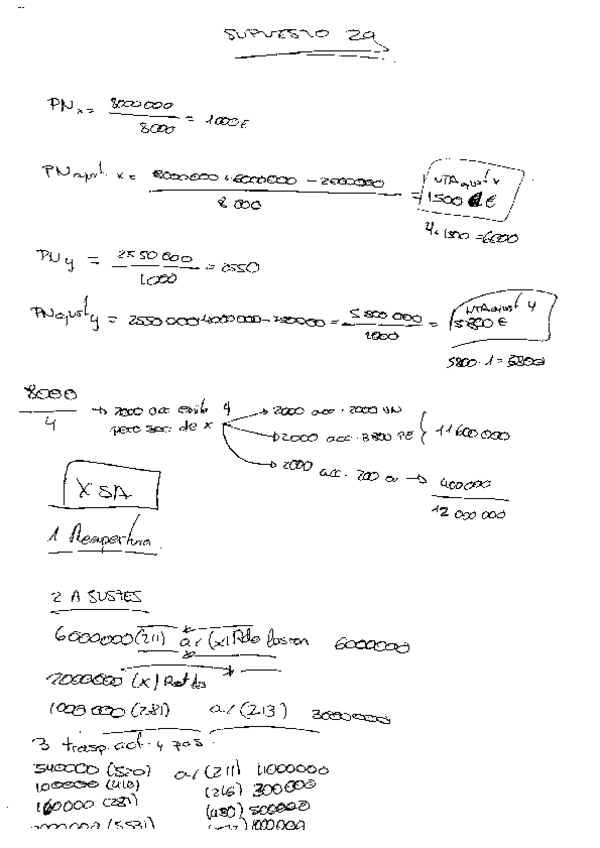 SUPUESTO 29
PNx = 8000000 / 8000 = 1000€
PN ajust. x = 8000000 + 6000000 - 2000000 / 8000 = 1500 €
NTA ajust x
4 × 1500 = 6000
PNy = 2550000 / 1000 = 2550
PN ajust y = = 5800000 / 1000 = 5800 €
NTA ajust y
5800 · 1 = 5800
8000 / 4 → 2000 acc emite y
para soc. de x
→ 2000 acc · 2000 VN
→ 2000 acc · 3800 PE } 11600000
→ 2000 acc. 200 → 400000
12000000
X SA
1 Reapertura
2 AJUSTES
6000000 (211) a/ (x) Rdo fusion 6000000
2000000 (x)
1000000 (281) a/ (213) 3000000
3 trasp. act. y pas.
540000 (520) a/ (211) 11000000
100000 (216) 300000
160000 (281) 500000
(5531) 1000000